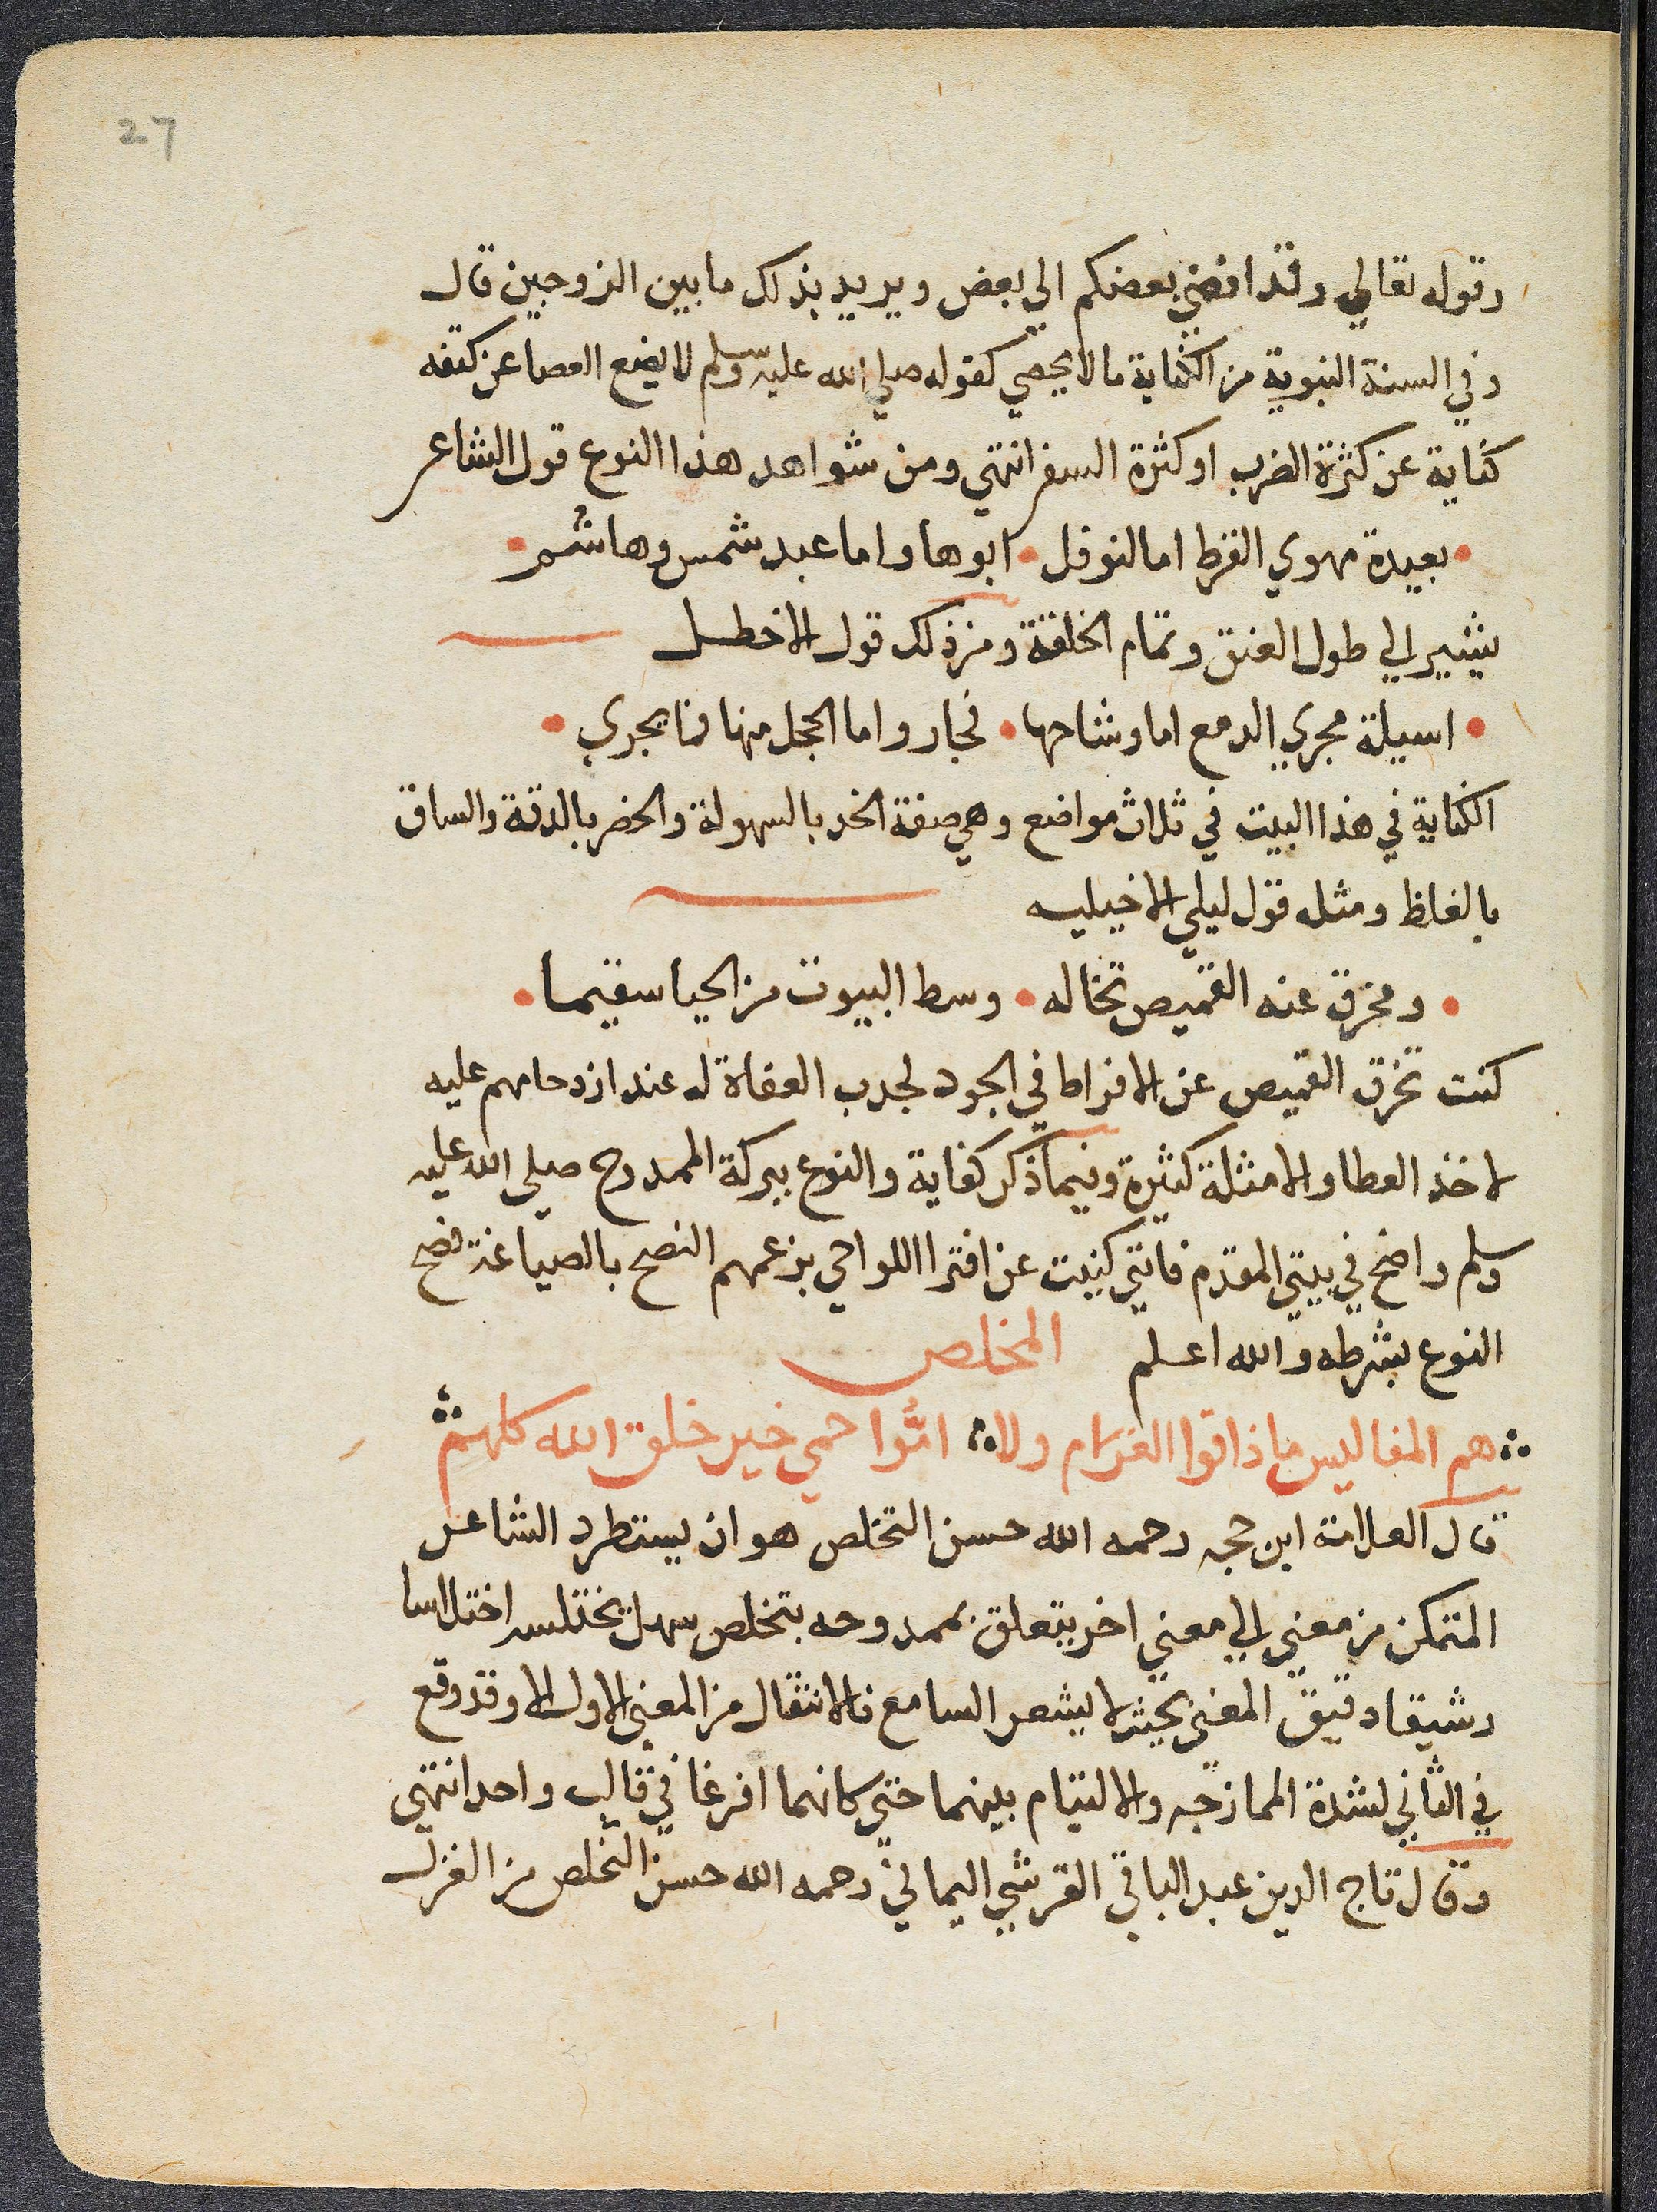 27
وقوله تعالي وقد افضي بعضكم الي بعض ويريد بذلك ما بين الزوجين قال
وفي السنة النبوية من الكناية ما لا يحصي كقوله صلي الله عليه وسلم لا يضع العصا عن كتفه
كناية عن كثرة الضرب او كثرة السفر انتهي ومن شواهد هذا النوع قول الشاعر
• بعيدة مهوي القرط اما لنوفل • ابوها واما عبد شمس وهاشم •
يشير الي طول العنق وتمام الخلقة ومن ذلك قول الاخطل
• اسيلة مجري الدمع اما وشاحها • فجار واما الحجل منها فما يجري •
الكناية في هذا البيت في ثلاث مواضع وهي صفة الخد بالسهولة والخصر بالدقة والساق
بالغلظ ومثله قول ليلي الاخيليه
• ومخرق عنه القميص تخاله • وسط البيوت من الحيا سقيما •
كنت تخرق القميص عن الافراط في الجود لجدب العفاة له عند ازدحامهم عليه
لاخذ العطا والامثلة كثيرة وفيما ذكر كفاية والنوع ببركة الممدوح صلي الله عليه
وسلم واضح في بيتي المقدم فانني كنيت عن افترا اللواحي بزعمهم النصح بالصياغة فصح
النوع بشرطه والله اعلم المخلص
هم المفاليس ما ذاقوا الغرام ولا امُّوا حمي خير خلق الله كلهم
قال العلامة ابن حجه رحمه الله حسن التخلص هو ان يستطرد الشاعر
المتمكن من معني الي معني اخر يتعلق بممدوحه بتخلص سهل يختلسه اختلاسا
رشيقا دقيق المعني بحيث لا يشعر السامع فالانتقال من المعني الاول الا وقد وقع
في الثاني لشدة الممازجه والالتيام بينهما حتي كانهما افرغا في قالب واحد انتهي
وقال تاج الدين عبد الباقي القرشي اليماني رحمه الله حسن التخلص من الغزل